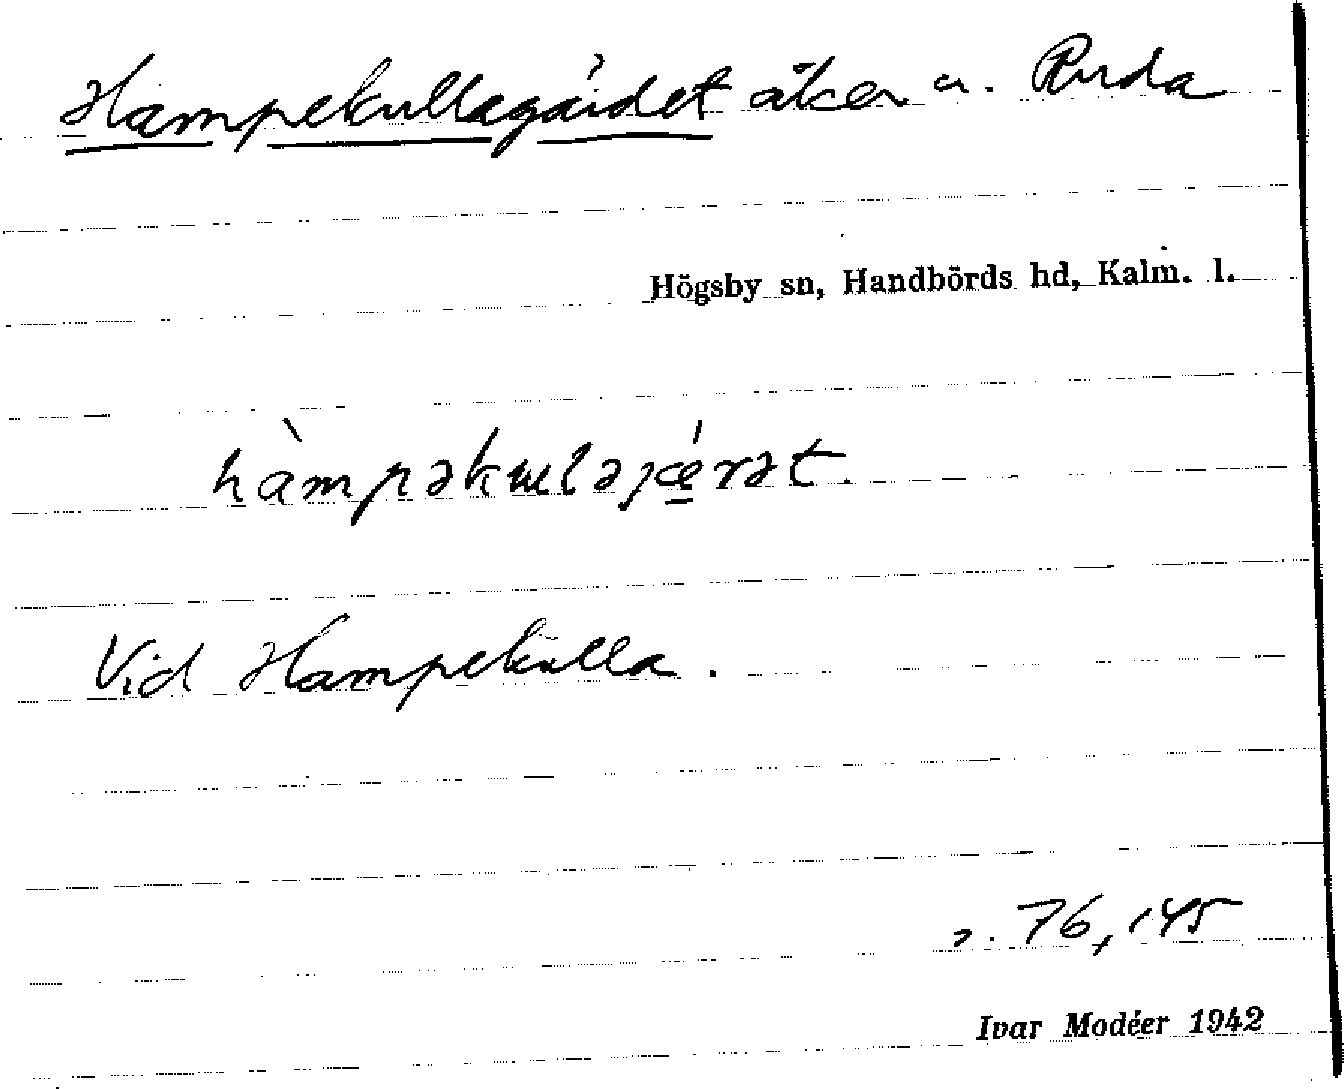 Hampekullagärdet åker u. Ruda
Högsby sn, Handbörds hd, Kalm. l.
hàmpəkuləjǽ̠rət.
Vid Hampekulla.
s. 76, 145
Ivar Modéer 1942